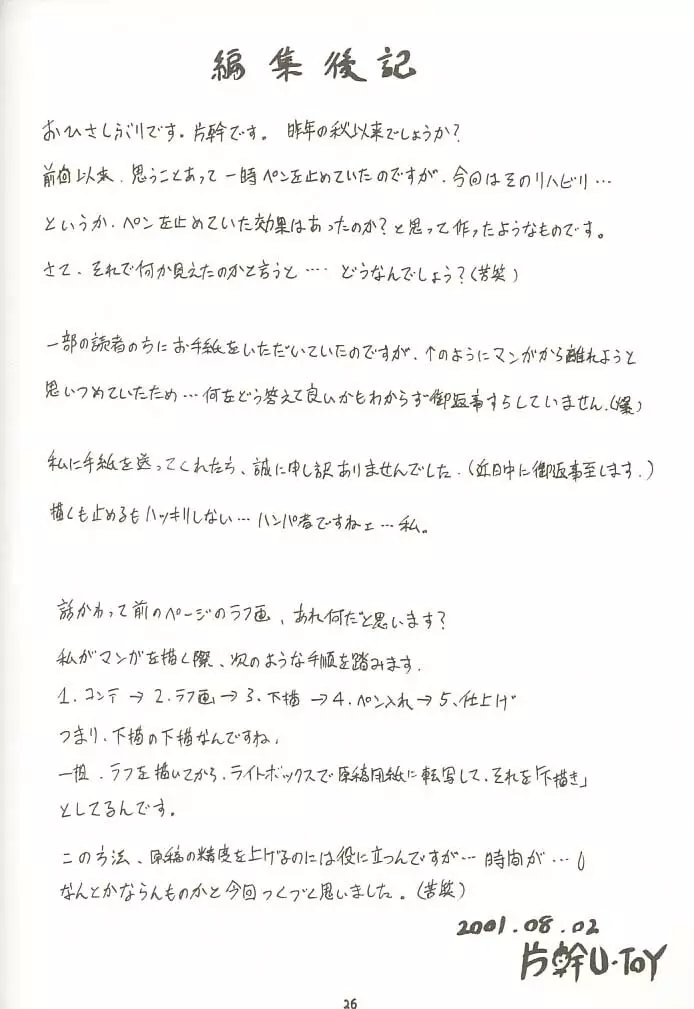 編集後記
おひさしぶりです。片幹です。昨年の秋以来でしょうか?
前回以来、思うことあって一時ペンを止めていたのですが、今回はそのリハビリ…
というか、ペンを止めていた効果はあったのか?と思って作ったようなものです。
さて、それで何か見えたのかと言うと…どうなんでしょう?(苦笑)
一部の読者の方にお手紙をいただいていたのですが、↑のようにマンガから離れようと
思いつめていたため…何をどう答えて良いかもわからず御返事すらしていません。(爆)
私に手紙を送ってくれた方、誠に申し訳ありませんでした。(近日中に御返事至します。)
描くも止めるもハッキリしない…ハンパ者ですねェ…私。
話かわって前のページのラフ画、あれ何だと思います?
私がマンガを描く際、次のような手順を踏みます。
1.コンテ→2.ラフ画→3.下描→4.ペン入れ→5.仕上げ
つまり、下描の下描なんですね。
一担、ラフを描いてから、ライトボックスで原稿用紙に転写して、それを「下描き」
としてるんです。
この方法、原稿の精度を上げるのには役に立つんですが…時間が…
なんとかならんものかと今回つくづくと思いました。(苦笑)
2001.08.02
片幹U・ToY
26